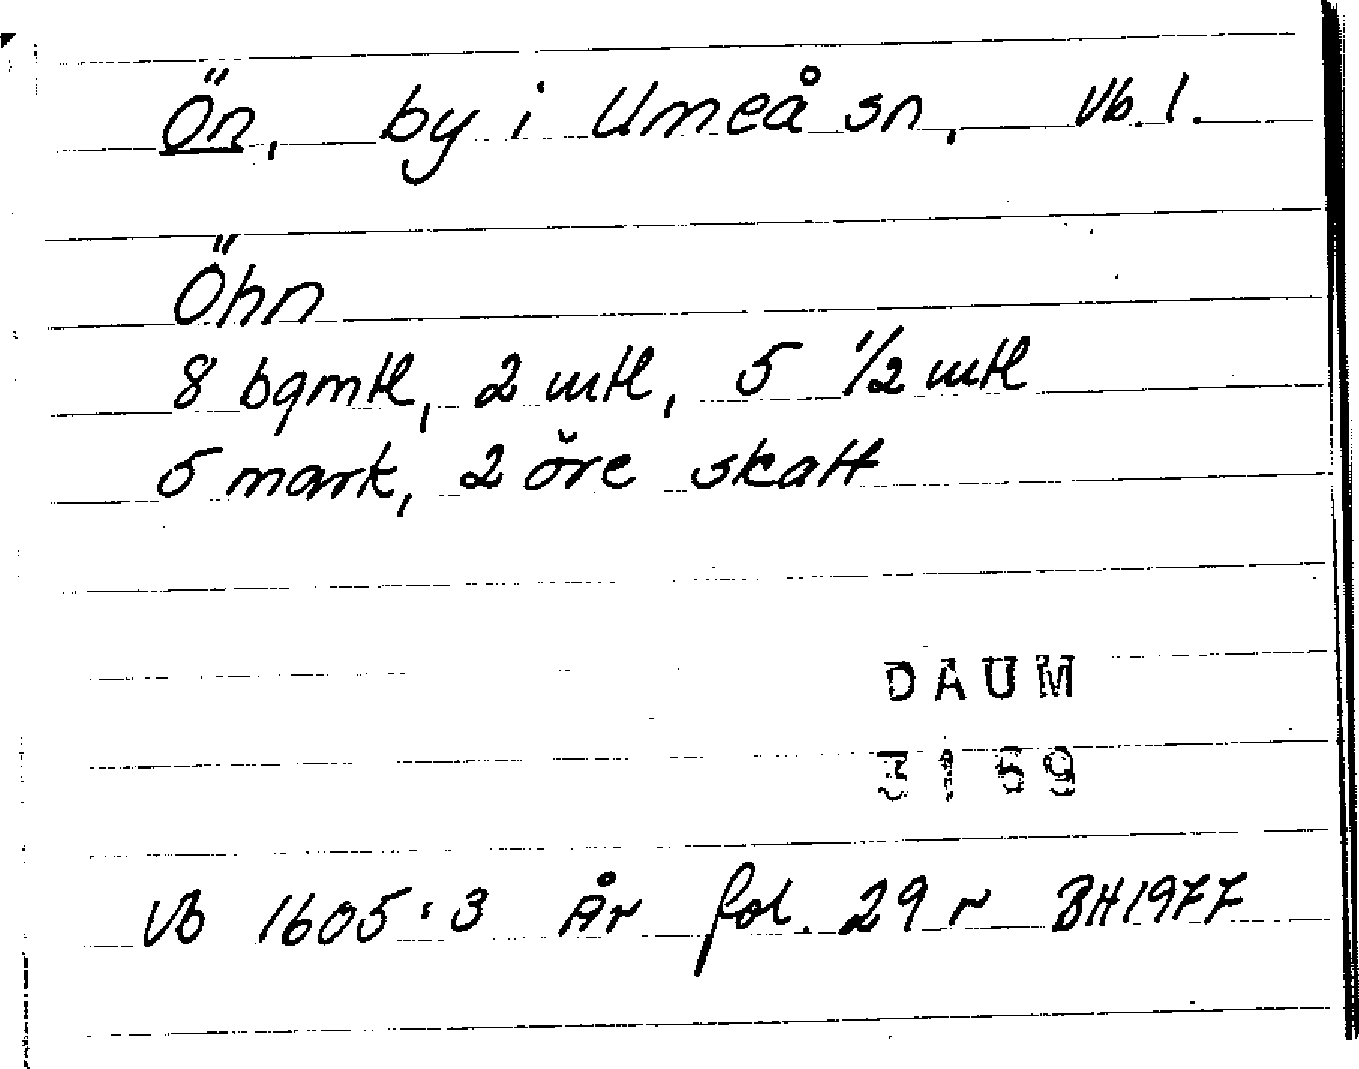 Ön, by i Umeå sn, Vb. l.
Öhn
8 bgmtl, 2 mtl, 5 1/2 mtl
5 mark, 2 öre skatt
DAUM
3169
Vb 1605:3 År fol. 29 r BH 1977